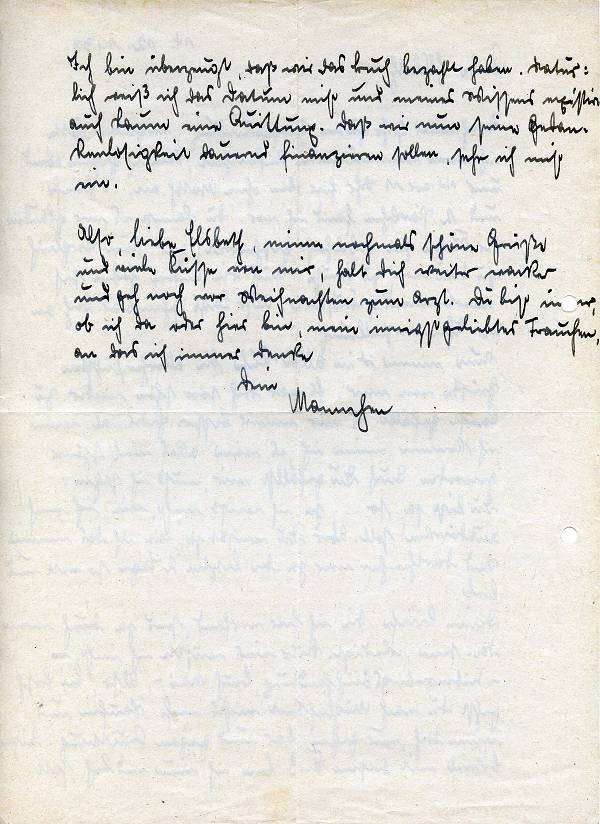 Ich bin überzeugt, daß wir das Buch bezahlt haben. Natür=
lich weiß ich das Datum nicht und meines Wissens existiert
auch kaum eine Quittung. Daß wir nun seine Gedan-
kenlosigkeit dauernd finanzieren sollen, sehe ich nicht
ein.
Also, liebe Elsbeth, nimm nochmals schöne Grüße
und viele Küsse von mir, halt Dich weiter wacker
und geh noch vor Weihnachten zum Arzt. Du bist immer,
ob ich da oder hier bin, mein innigstgeliebtes Frauchen,
an das ich immer denke
Dein
Mannchen